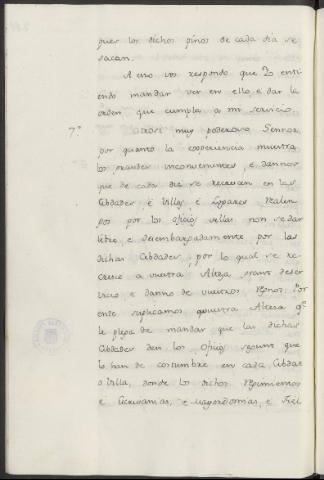 pues los dichos pinos de cada dia se
sacan.
A esto vos respondo que Yo enti
endo mandar ver en ello, e dar la
orden que cumpla a mi servicio.
7.º Otrosi muy poderoso Sennor
por quanto la experiencia muestra
los grandes inconvenientes, e dannos
que de cada dia se recrecen en las
Cibdades, e Villas, e Lugares Realen
gos por los oficios dellas non se dar
libre e desembargadamente por las
dichas Cibdades, por lo qual se re-
cresce a vuestra Alteza grant deser
vicio, e danno de vuestros Regnos. Por
ende suplicamos a vuestra Alteza q.e
le plega de mandar que las dichas
Cibdades den los Oficios segunt que
lo han de costumbre en cada Cibdat
o Villa, donde los dichos Regimientos
e Escribanias, e Mayordomias, e Fiel